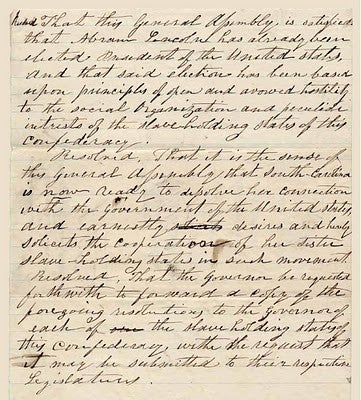 That this General Assembly is satisfied
that Abram Lincoln has already been
elected President of the United States,
and that said election has been based
upon principles of open and avowed hostility
to the social organization and peculiar
interests of the slave holding states of this
Confederacy.
Resolved, That it is the sense of
this General Assembly that South Carolina
is now ready to dissolve her connection
with the Government of the United States,
and earnestly desires and hereby
solicits the cooperation of her sister
slave holding states in such movement.
Resolved That the Governor be requested
forthwith to forward a copy of the
foregoing resolutions to the Governor of
each of the slave holding states of
this Confederacy, with the request that
it may be submitted to their respective
Legislatures.